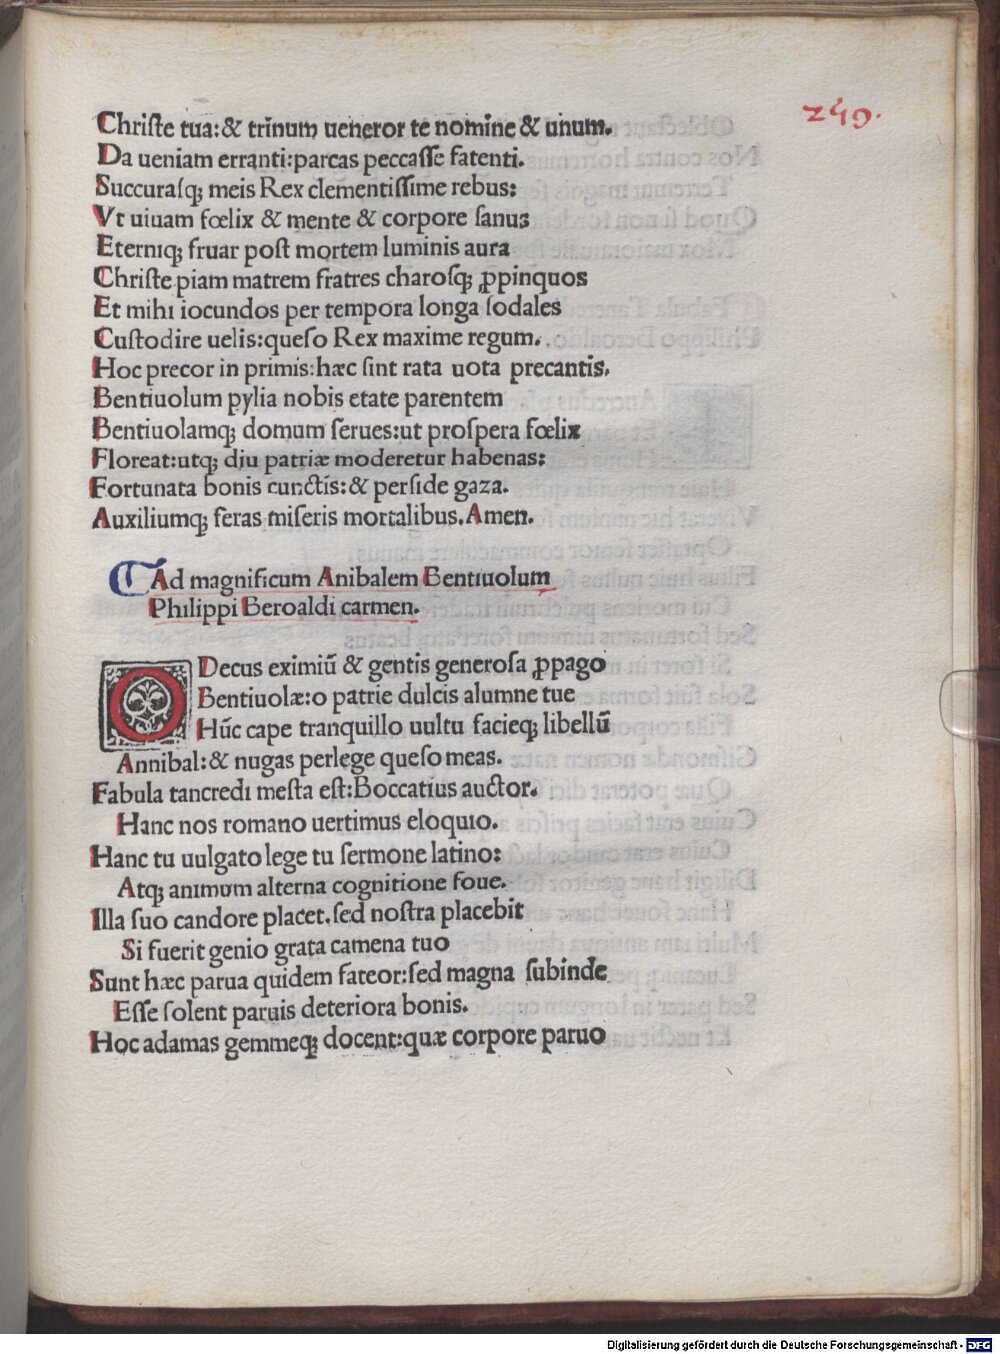 249.
Christe tua: & trinum ueneror te nomine & unum.
Da ueniam erranti: parcas peccasse fatenti.
Succurasqꝫ meis Rex clementissime rebus:
Vt uiuam fœlix & mente & corpore sanus
Eterniqꝫ fruar post mortem luminis aura
Christe piam matrem fratres charosqꝫ ꝓpinquos
Et mihi iocundos per tempora longa sodales
Custodire uelis: queso Rex maxime regum.
Hoc precor in primis: hæc sint rata uota precantis.
Bentiuolum pylia nobis etate parentem
Bentiuolamqꝫ domum serues: ut prospera fœlix
Floreat: utqꝫ diu patriæ moderetur habenas:
Fortunata bonis cunctis: & perside gaza.
Auxiliumqꝫ feras miseris mortalibus. Amen.
Ad magnificum Anibalem Bentiuolum
Philippi Beroaldi carmen.
O Decus eximiū & gentis generosa ꝓpago
Bentiuolæ: o patrie dulcis alumne tue
Hūc cape tranquillo uultu facieqꝫ libellū
Annibal: & nugas perlege queso meas.
Fabula tancredi mesta est: Boccatius auctor.
Hanc nos romano uertimus eloquio.
Hanc tu uulgato lege tu sermone latino:
Atqꝫ animum alterna cognitione foue.
Illa suo candore placet. sed nostra placebit
Si fuerit genio grata camena tuo
Sunt hæc parua quidem fateor: sed magna subinde
Esse solent paruis deteriora bonis.
Hoc adamas gemmeqꝫ docent: quæ corpore paruo
Digitalisierung gefördert durch die Deutsche Forschungsgemeinschaft - DFG